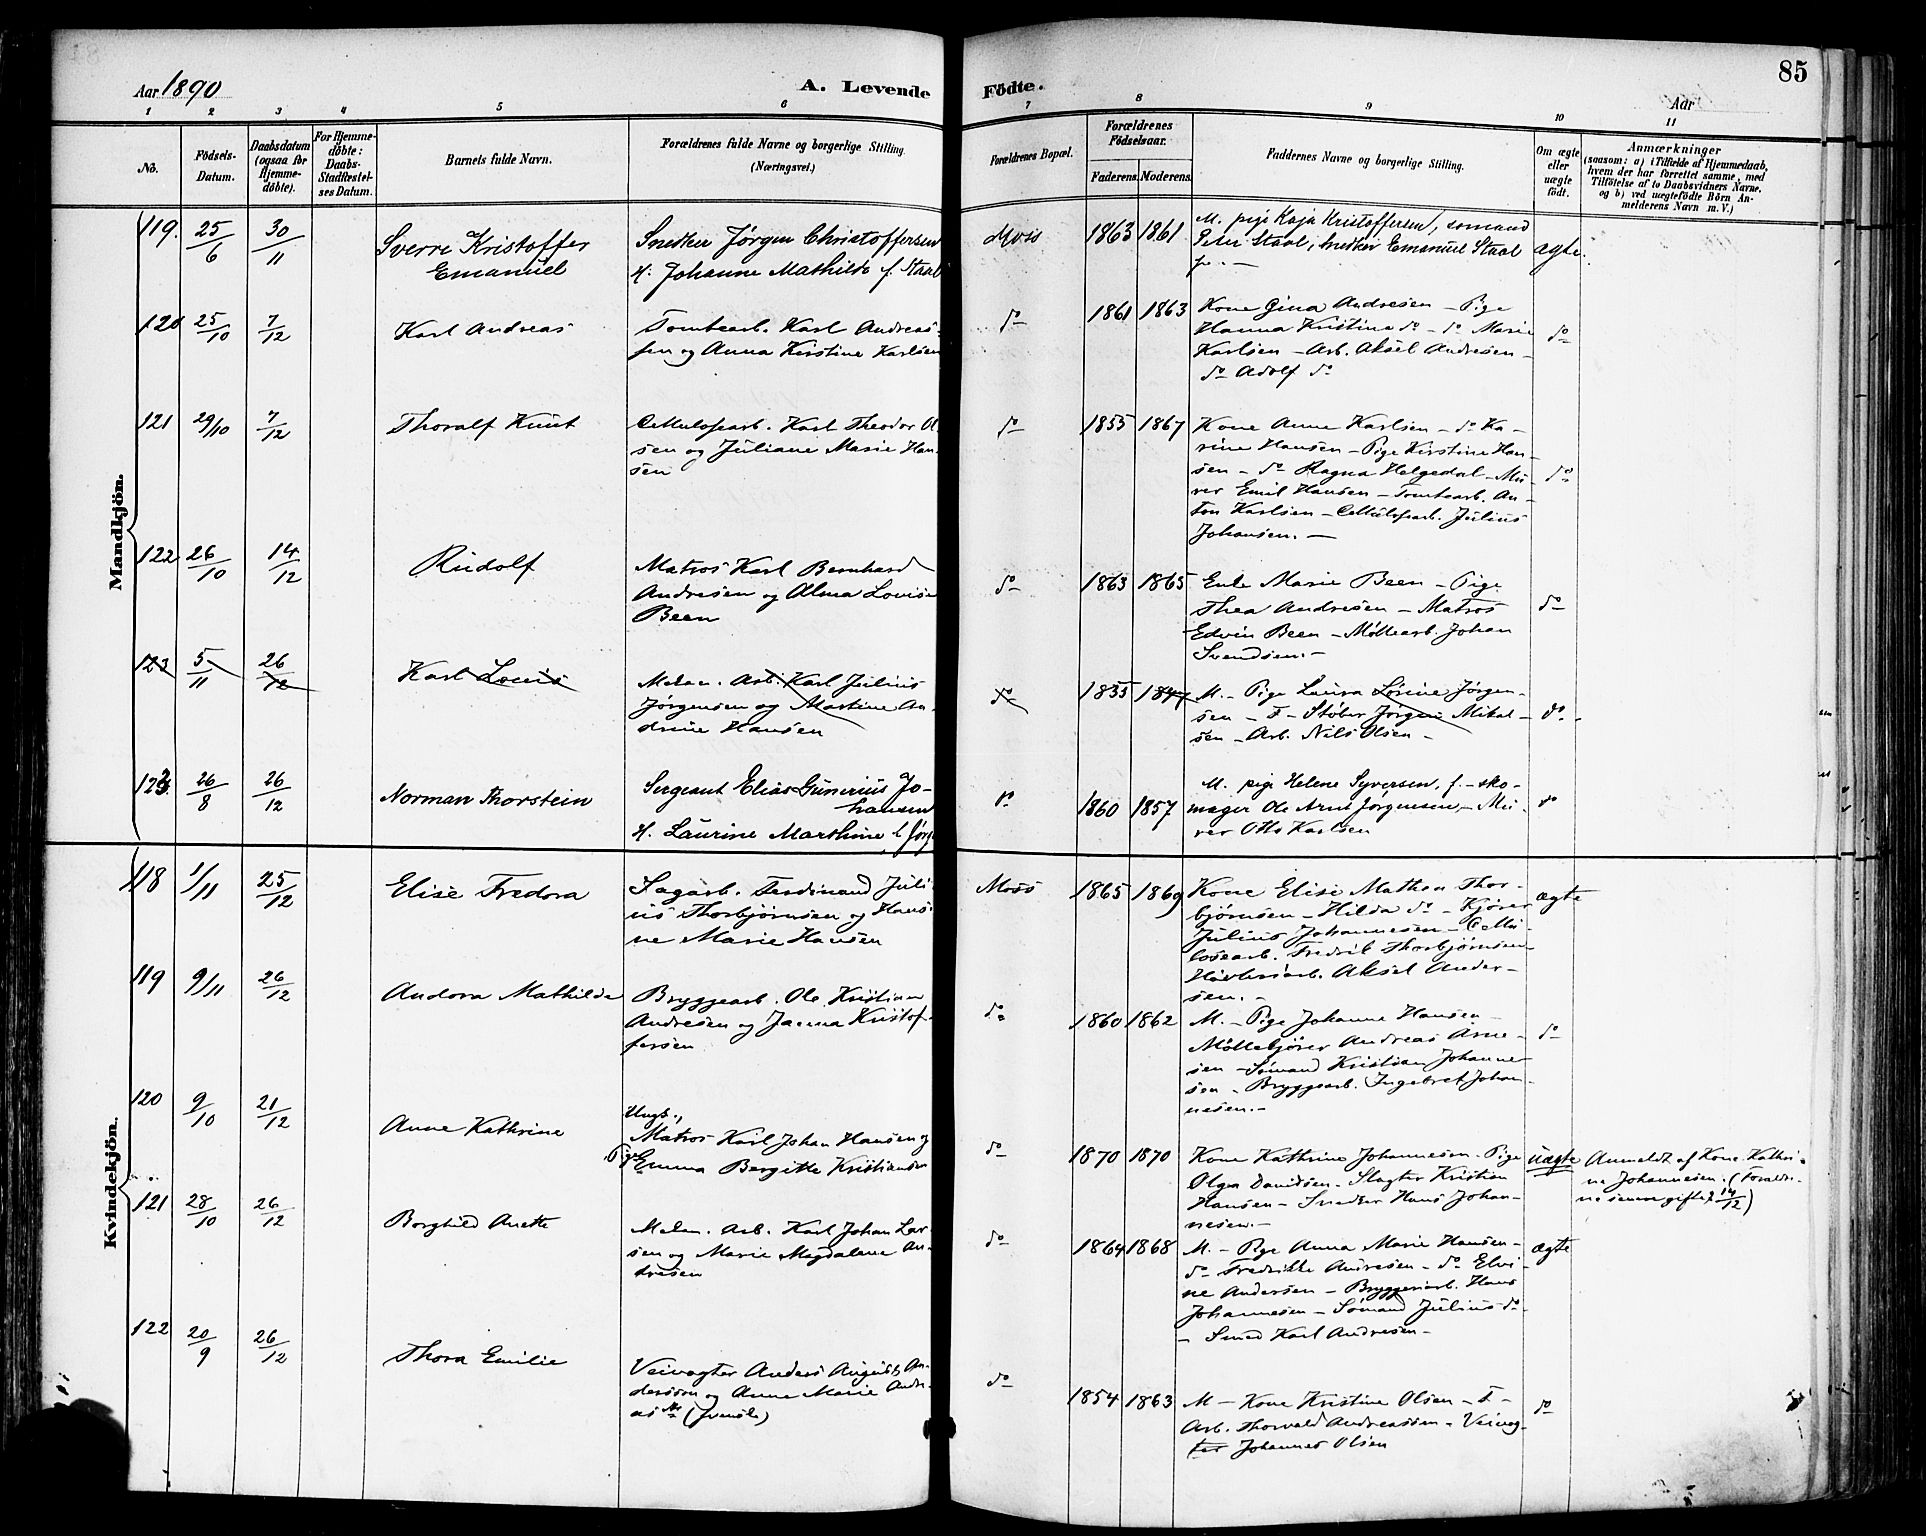 Aar 1890
A. Levende
Födte.
Aar
85
1 2 3 4 5 6 7 8 9 10 11
No.
Födsels-Datum.
Daabsdatum (ogsaa for Hjemmedöbte).
For Hjemmedöbte: Daabs-Stadfæstelses Datum.
Barnets fulde Navn.
Forældrenes fulde Navne og borgerlige Stilling. (Næringsvei.)
Forældrenes Bopæl.
Forældrenes Födselsaar.
Faderens. Moderens.
Faddernes Navne og borgerlige Stilling.
Om ægte eller uægte födt.
Anmærkninger
(saasom: a) i Tilfælde af Hjemmedaab,
hvem der har forrettet samme, med
Tilföielse af to Daabsvidners Navne,
og b) ved uægtefödte Börn An-
melderens Navn m. V.)
Mandkjön.
119. 25/6 30/11
Sverre Kristoffer
Emanuel
Snedker Jørgen Christoffersen
H. Johanne Mathilde f. Staal
Moss 1863 1861
M. pige Kaja Kristoffersen, sømand
Peter Staal, snedker Emanuel Staal
ægte
120 25/10 7/12
Karl Andreas
Tomtearb. Karl Andreas-
sen og Anna Kirstine Karlsen
do 1861 1863
Kone Gina Andresen – Pige
Hanna Kristine do – do Marie
Karlsen – Arb. Aksel Andresen –
do Adolf do
do
121 29/10 7/12
Thoralf Knut
Cellulosearb. Karl Theodor Ol
sen og Juliane Marie Han-
sen
do 1855 1867
Kone Anne Karlsen – do Ka-
rine Hansen – Pige Kirstine Han-
sen – do Ragna Helgedal – Mu-
rer Emil Hansen – Tomtearb. An-
ton Karlsen – Cellulosearb. Julius
Johansen. –
do
122 26/10 14/12
Rudolf
Matros Karl Bernhard
Andresen og Alma Lovise
Been
do 1863 1865
Enke Marie Been – Pige
Thea Andresen – Matros
Edvin Been – Møllearb. Johan
Svendsen. –
do
123 5/11 26/12
Karl Louis
Mekan. Arb. Karl Julius
Jørgensen og Martine An-
drine Hansen
do 1855 1847
M. – Pige Laura Lovine Jørgen-
sen – F – Støber Jørgen Mikal-
sen – Arb. Nils Olsen –
do
123 26/8 26/12
Norman Thorstein
Sergeant Elias Gunerius Jo-
hansen
H. Laurine Marthine f. Jørg
do 1860 1857
M. pige Helene Syversen, f. – sko-
mager Ole Arnt Jørgensen, – Mu-
rer Otto Karlsen
do
Kvindekjön.
118 1/11 25/12
Elise Fredora
Sagarb. Ferdinand Juli-
us Thorbjørnsen og Hans-
ine Marie Hansen
Moss 1865 1869
Kone Elise Mathea Thor-
bjørnsen – Hilda do – Kjører
Julius Johannesen – Cellu-
losearb. Fredrik Thorbjørnsen
Høvleriarb. Aksel Ander-
sen. –
ægte
119 9/11 26/12
Andora Mathilde
Bryggearb. Ole Kristian
Andresen og Janna Kristof-
fersen
do 1860 1862
M. – Pige Johanne Hansen –
Møllekjører Andreas Arne-
sen – Sømand Kristian Johanne
sen – Bryggearb. Ingebret Johan-
nesen. –
do
120 9/10 21/12
Anne Kathrine
Ungk.,
Matros Karl Johan Hansen og
Pige Emma Bergitte Kristiansen
do 1870 1870
Kone Kathrine Johannesen. Pige
Olga Davidsen – Slagter Kristian
Hansen – Snedker Hans Johan-
nesen. –
uægte
Anmeldt af Kone Kathri-
ne Johannesen. (Forældre-
ne senere giftet 14/12)
121 28/10 26/12
Borghild Anette
Mekan. Arb. Karl Johan Lar-
sen og Marie Magdalene An-
dresen
do 1864 1868
M. – Pige Anna Marie Hansen –
do Fredrikke Andresen – do Elvi-
ne Andersen – Bryggeriarb. Hans
Johannesen – Sømand Julius do –
– Smed Karl Andresen –
ægte
122 20/9 26/12
Thora Emilie
Veivogter Anders August An-
derssen og Anne Marie Andre-
as (svenske)
do 1854 1863
M – Kone Kristine Olsen – F –
Arb. Thorvald Andreassen – Veivog-
ter Johannes Olsen
do